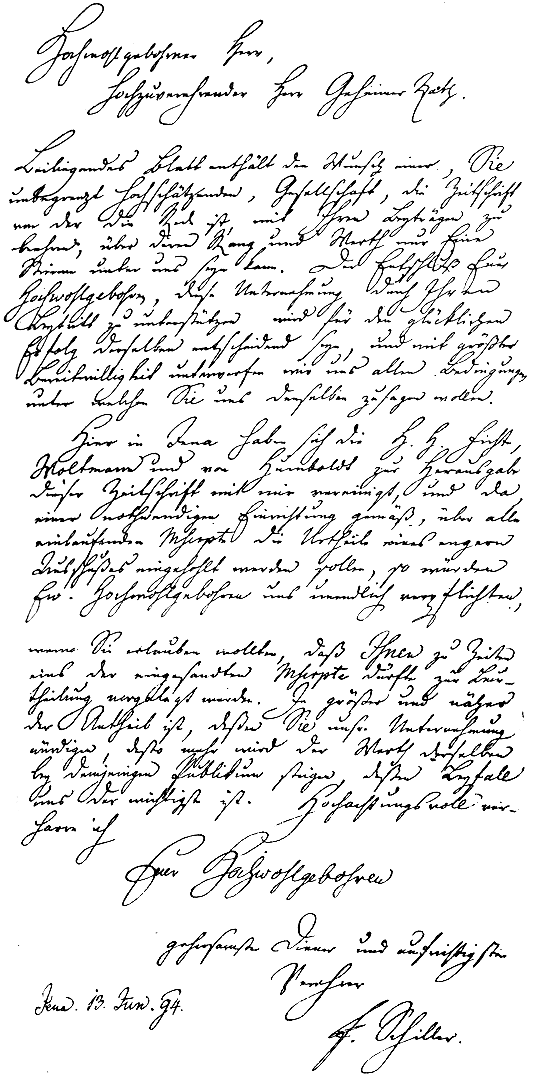 Hochwohlgebohrner Herr,
Hochzuverehrender Herr Geheimer Rath.
Beiliegendes Blatt enthält den Wunsch einer, Sie
unbegrenzt hochschätzenden, Gesellschaft, die Zeitschrift
von der die Rede ist, mit Ihren Beyträgen zu
beehren, über deren Rang und Werth nur Eine
Stimme unter uns seyn kann. Der Entschluß Euer
Hochwohlgebohren, diese Unternehmung durch Ihren
Beytritt zu unterstützen wird für den glücklichen
Erfolg derselben entscheidend seyn, und mit größter
Bereitwilligkeit unterwerfen wir uns allen Bedingungen
unter welchen Sie uns denselben zusagen wollen.
Hier in Jena haben sich die H. H. Fichte,
Woltmann und von Humboldt zur Herausgabe
dieser Zeitschrift mit mir vereinigt, und da,
einer nothwendigen Einrichtung gemäß, über alle
einlaufenden Mscrpte die Urtheile eines engern
Ausschußes eingehohlt werden sollen, so würden
Ew. Hochwohlgebohren uns unendlich verpflichten,
wenn Sie erlauben wollten, daß Ihnen zu Zeiten
eins der eingesandten Mscrpte dürfte zur Beur-
theilung vorgelegt werden. Je größer und näher
der Antheil ist, deßen Sie unsre Unternehmung
würdigen, desto mehr wird der Werth derselben
bey demjenigen Publikum steigen, deßen Beyfall
uns der wichtigste ist. Hochachtungsvoll ver-
harre ich
Euer Hochwohlgebohren
gehorsamster Diener und aufrichtigster
Verehrer
Jena. 13. Jun. 94.
F. Schiller.